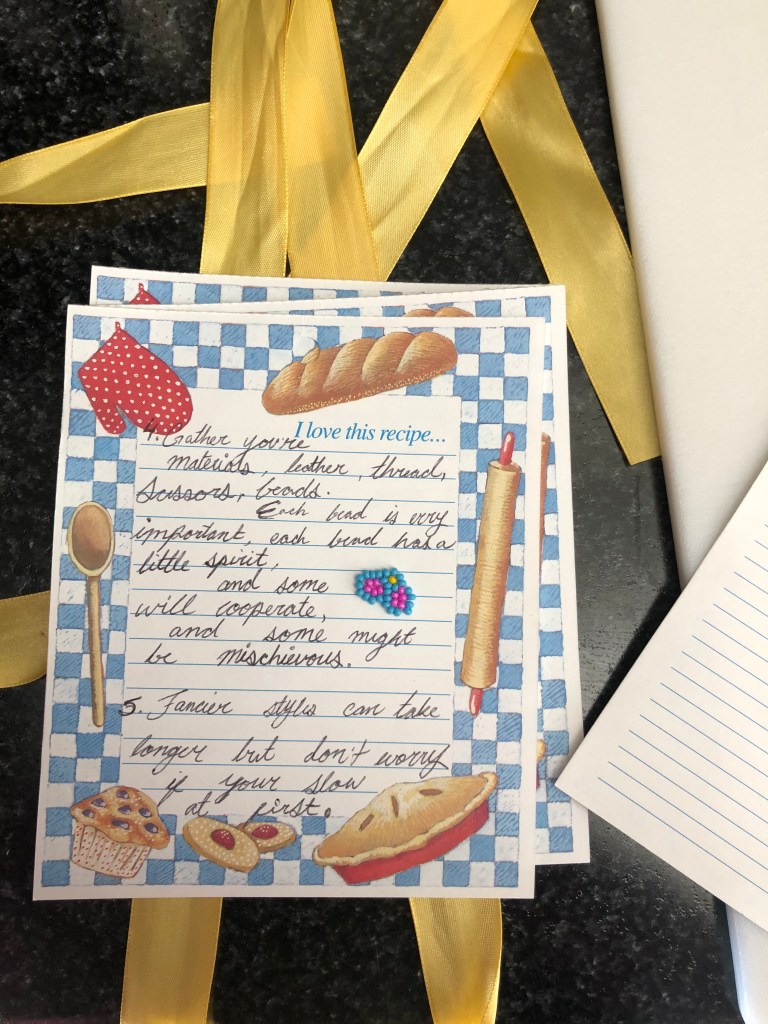 I love this recipe...
4. Gather you're
materials, leather, thread,
scissors, beads.
Each bead is very
important, each bead has a
little spirit,
and some
will cooperate,
and some might
be mischievous.
5. Fancier styles can take
longer but don't worry
if your slow
at first.